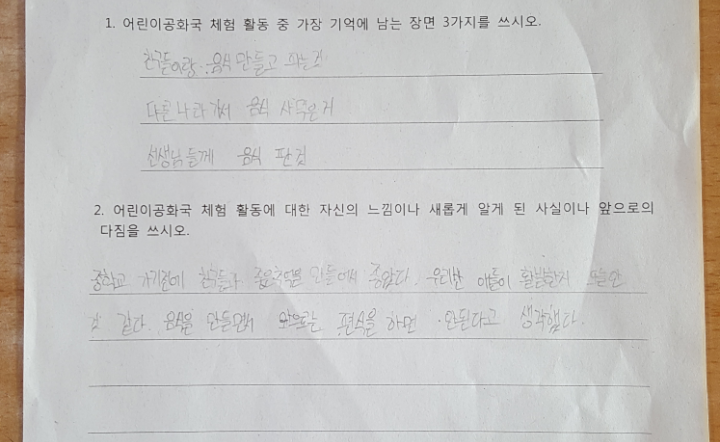 1. 어린이공화국 체험 활동 중 가장 기억에 남는 장면 3가지를 쓰시오.
친구들이랑 음식 만들고 파는것
다른나라 가서 음식 사먹은거
선생님들께 음식 판 점
2. 어린이공화국 체험 활동에 대한 자신의 느낌이나 새롭게 알게 된 사실이나 앞으로의
다짐을 쓰시오.
중학교 가기전에 친구들과 좋은추억을 만들어서 좋았다. 우리반 애들이 활발한지 오늘안
것 같다. 음식을 만들면서 앞으로는 편식을 하면 안된다고 생각했다.